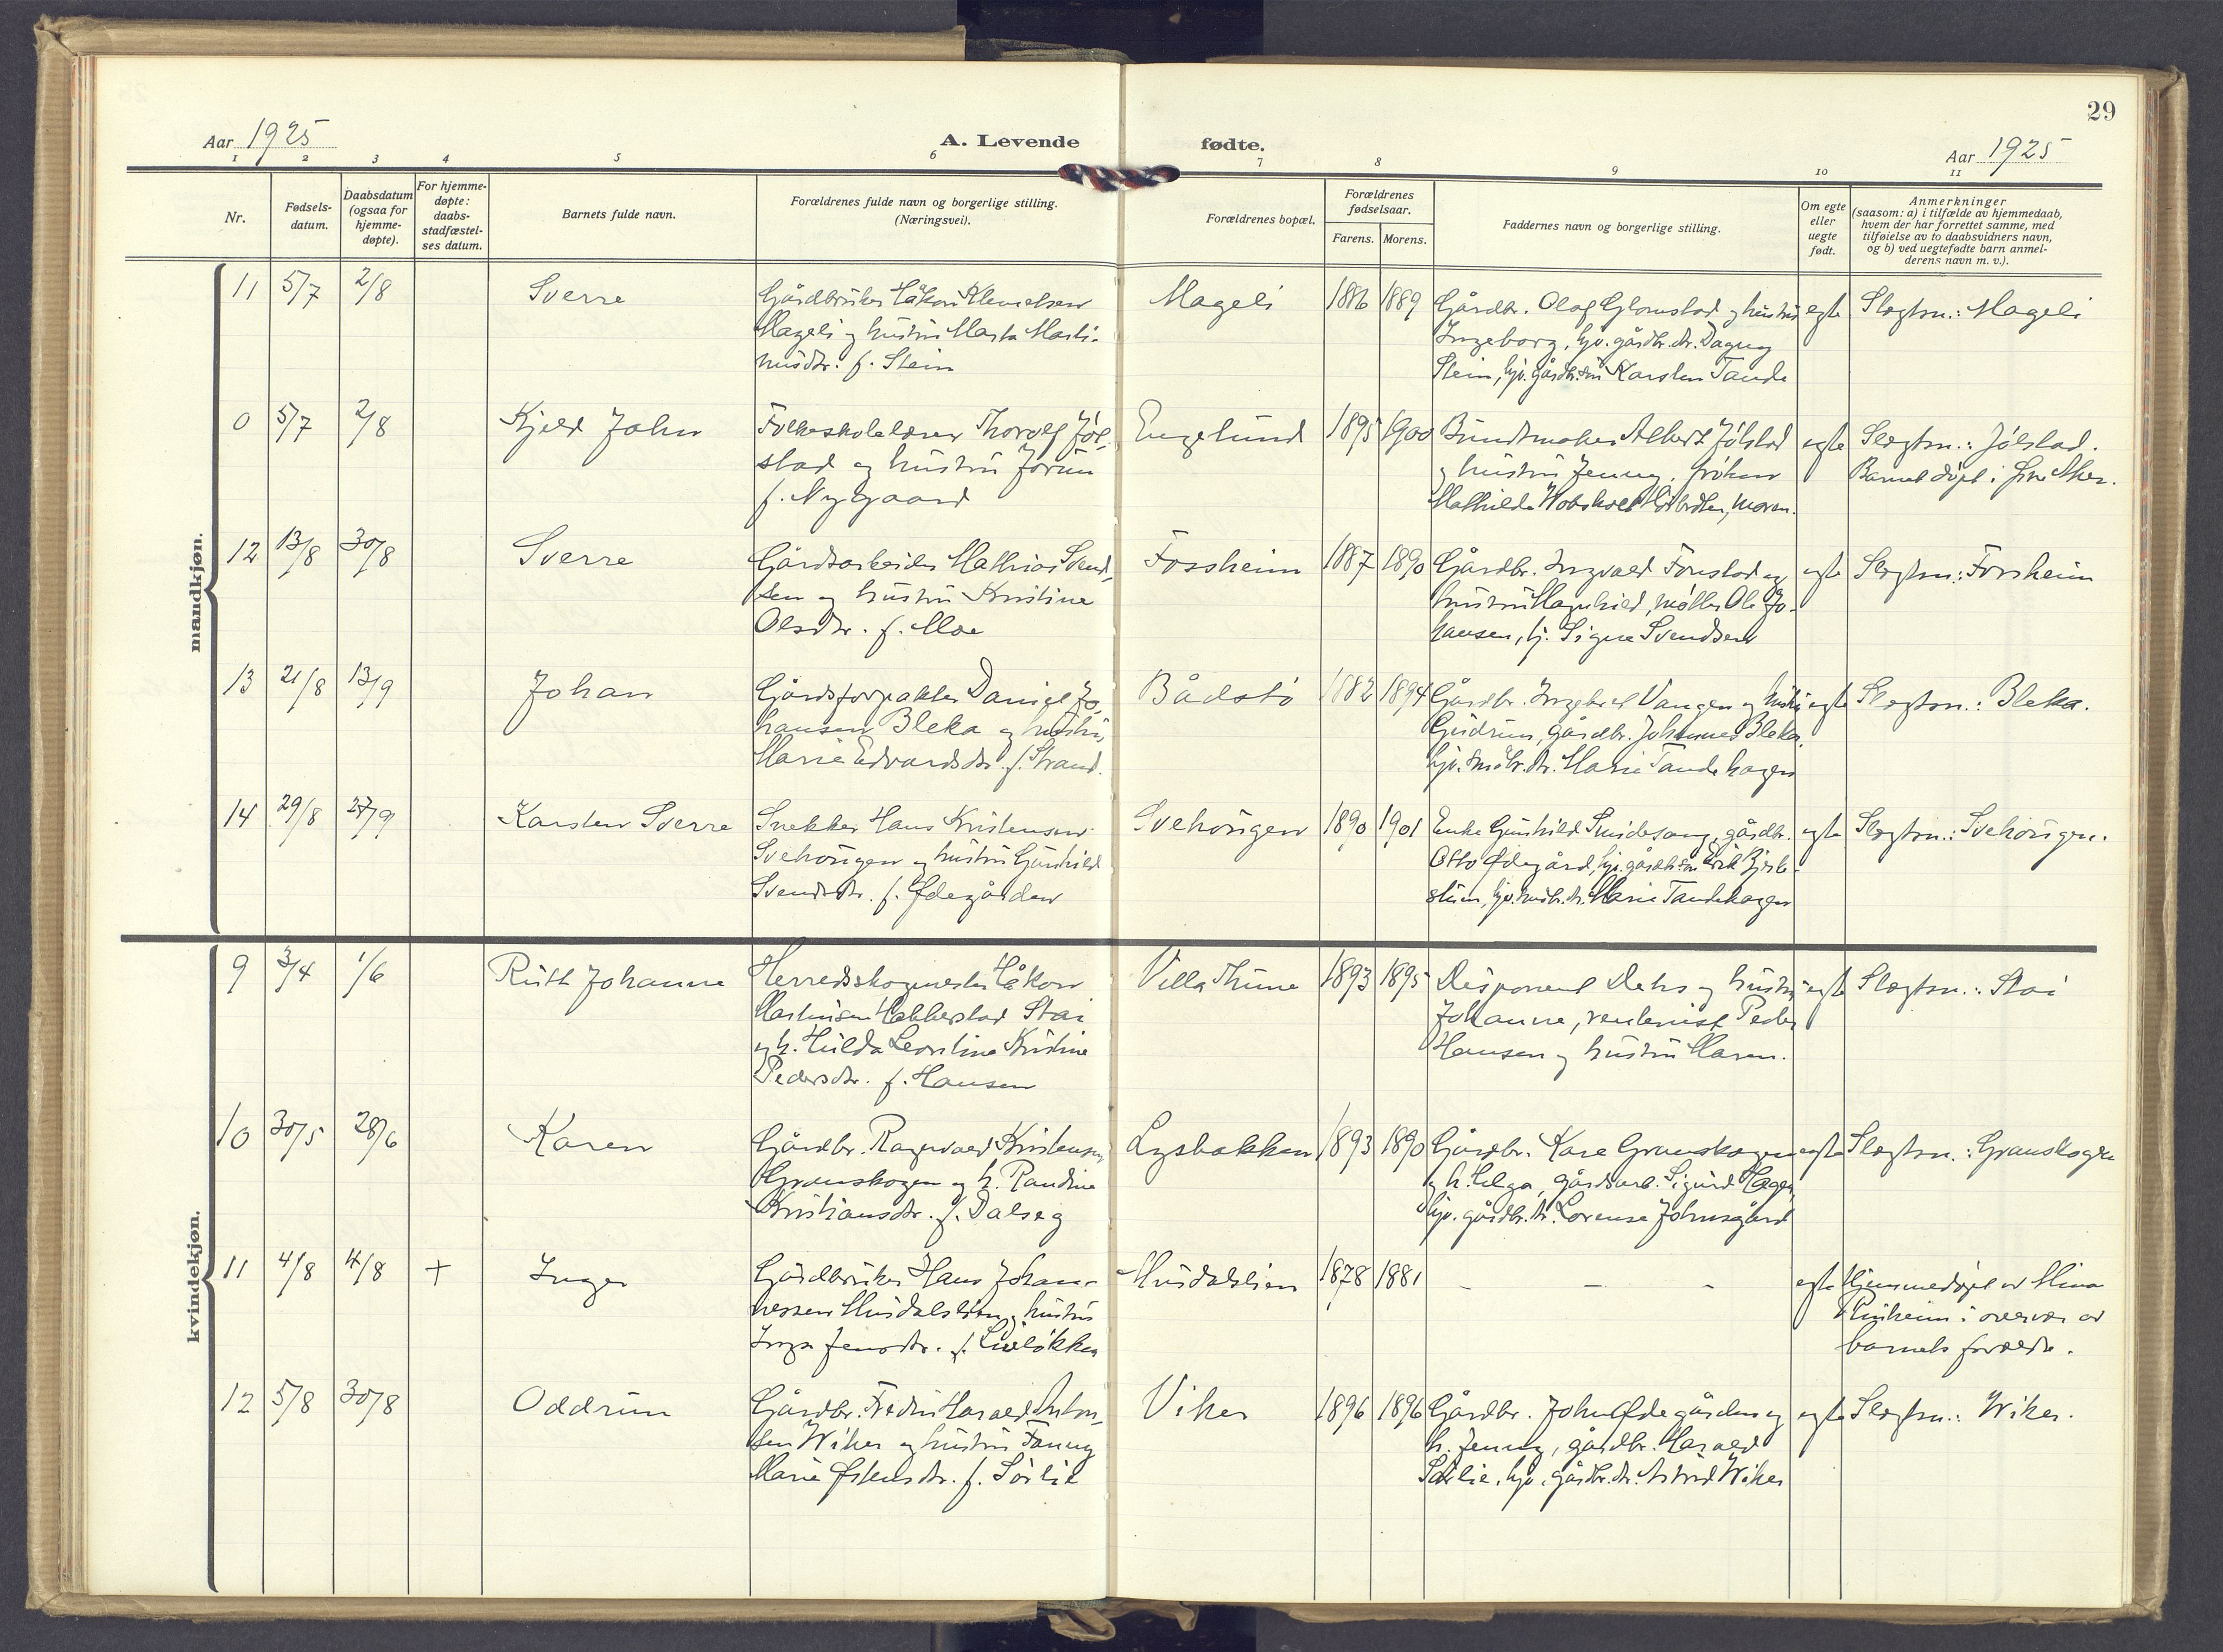 29
Aar 1925
A. Levende
fødte.
Aar 1925
1 2 3 4 5 6 7 8 9 10 11
Nr.
Fødsels-
datum.
Daabsdatum
(ogsaa for
hjemme-
døpte).
For hjemme-
døpte:
daabs-
stadfæstel-
ses datum.
Barnets fulde navn.
Forældrenes fulde navn og borgerlige stilling.
(Næringsvei).
Forældrenes bopæl.
Forældrenes
fødselsaar.
Farens. Morens.
Faddernes navn og borgerlige stilling.
Om egte
eller
uegte
født.
Anmerkninger
(saasom: a) i tilfælde av hjemmedaab,
hvem der har forrettet samme, med
tilføielse av to daabsvidners navn,
og b) ved uegtefødte barn anmel-
derens navn m. v.).
mandkjøn.
11 5/7 2/8
Sverre
Gårdbruker Håkon Klemetsen
Mageli og hustru Marta Marti-
nusdtr. f. Stein
Mageli
1886 1889
Gårdbr. Olaf Glomstad og hustru
Ingeborg, hjv. gårdbr.dtr. Dagny
Stein, hjv. gårdbr.søn Karsten Tande
egte
Slegtsn.: Mageli
0 5/7 2/8
Kjeld John
Folkeskolelærer Thorolf Jøl-
stad og hustru Jorun
f. Nygaard
Engelund
1895 1900
Buntmaker Albert Jølstad
og hustru Jenny, frøken
Mathilde moren.
egte
Slegtsn.: Jølstad.
Barnet døpt i Aker.
12 13/8 30/8
Sverre
Gårdsarbeider Mathias Svend-
sen og hustru Kristine
Olsdtr. f. Moe
Fossheim
1887 1890
Gårdbr. Ingvald Fonstad og
hustru Magnhild, møller Ole Jo-
hansen, hj. Signe Svendsen
egte
Slegtsn.: Fossheim
13 21/8 13/9
Johan
Gårdsforpakter Daniel Jo-
hansen Bleka og hustru
Marie Edvardsdtr. f. Strand.
Bådstø
1882 1894
Gårdbr. Ingebret Vangen og hustru
Gudrun, gårdbr. Johannes Bleka,
hjv. småbr.dtr. Marie Tandehagen
egte
Slegtsn.: Bleka.
14 29/8 27/9
Karsten Sverre
Snekker Hans Kristensen
Svehaugen og hustru Gunhild
Svendsdtr. f. Ødegården
Svehaugen
1890 1901
Enke Gunhild Smidesang, gårdbr.
Otto Ødegård, hjv. gårdbr.søn Erik Bjerke-
stuen, hjv. småbr.dtr. Marie Tandehagen
egte
Slegtsn.: Svehaugen.
kvindekjøn.
9 3/4 1/6
Ruth Johanne
Herredsskogmester Håkon
Martinsen Habberstad Stai
og h. Hilda Leontine Kristine
Pedersdtr. f. Hansen
Villa Thune
1893 1895
Disponent Dehs og hustru
Johanne, rentenist Peder
Hansen og hustru Maren.
egte
Slegtsn.: Stai
10 30/5 28/6
Karen
Gårdbr. Ragnvald Kristensen
Granskogen og h. Randine
Kristiansdtr. f. Dalseg
Lysbakken
1893 1890
Gårdbr. Kare Granskogen
og h. Helga, gårdsarb. Sigurd Hagen,
hjv. gårdbr.dtr. Lorense Johnsgård
egte
Slegtsn.: Granskogen
11 4/8 4/8 +
Inger
Gårdbruker Hans Johan-
nessen Musdalslien og hustru
Inga Jensdtr. f. Lieløkken
Musdalslien
1878 1881
– – –
egte
Hjemmedøpt av Mina
i overvær av
barnets forældre.
12 5/8 30/8
Oddrun
Gårdbr. Fredrik Harald Anton-
sen Wiker og hustru Fanny
Marie Østensdtr. f. Sørlie
Viker
1896 1896
Gårdbr. John Ødegården og
h. Jenny, gårdbr. Harald
Sørlie, hjv. gårdbr.dtr. Astrid Wiker
egte
Slegtsn.: Wiker.